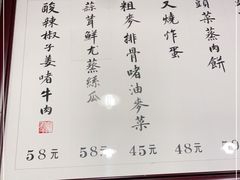 頭菜蒸肉餅
叉燒炸蛋
48元
粗麥排骨啫油麥菜
45元
蒜茸鮮尤蒸絲瓜
58元
酸辣椒子姜啫牛肉
58元